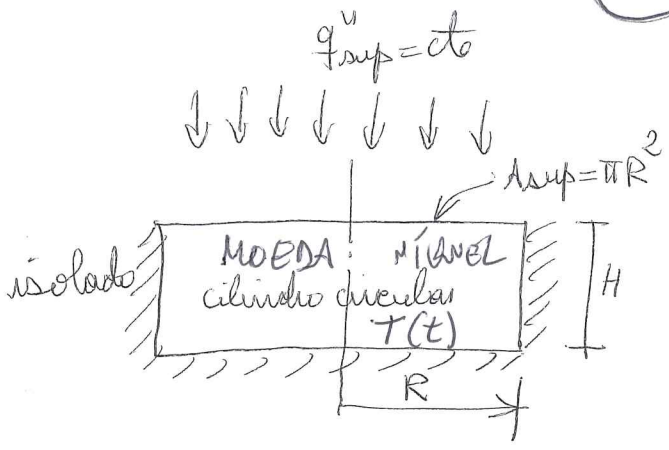 q"sup = cte
Asup = πR²
isolado
MOEDA: NÍQUEL
cilindro circular
T(t)
H
R